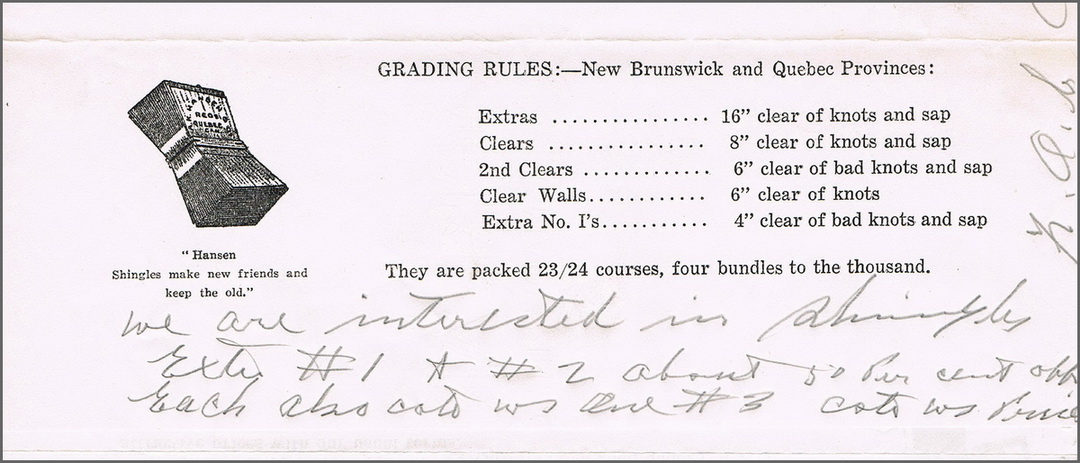 GRADING RULES:—New Brunswick and Quebec Provinces:
Extras ................ 16” clear of knots and sap
Clears ................ 8” clear of knots and sap
2nd Clears ............. 6” clear of bad knots and sap
Clear Walls............ 6” clear of knots
Extra No. I's........... 4” clear of bad knots and sap
“Hansen
Shingles make new friends and
keep the old.”
They are packed 23/24 courses, four bundles to the thousand.
we are interested in shingles
#1 #2 about 50 Per cent
Each also #3